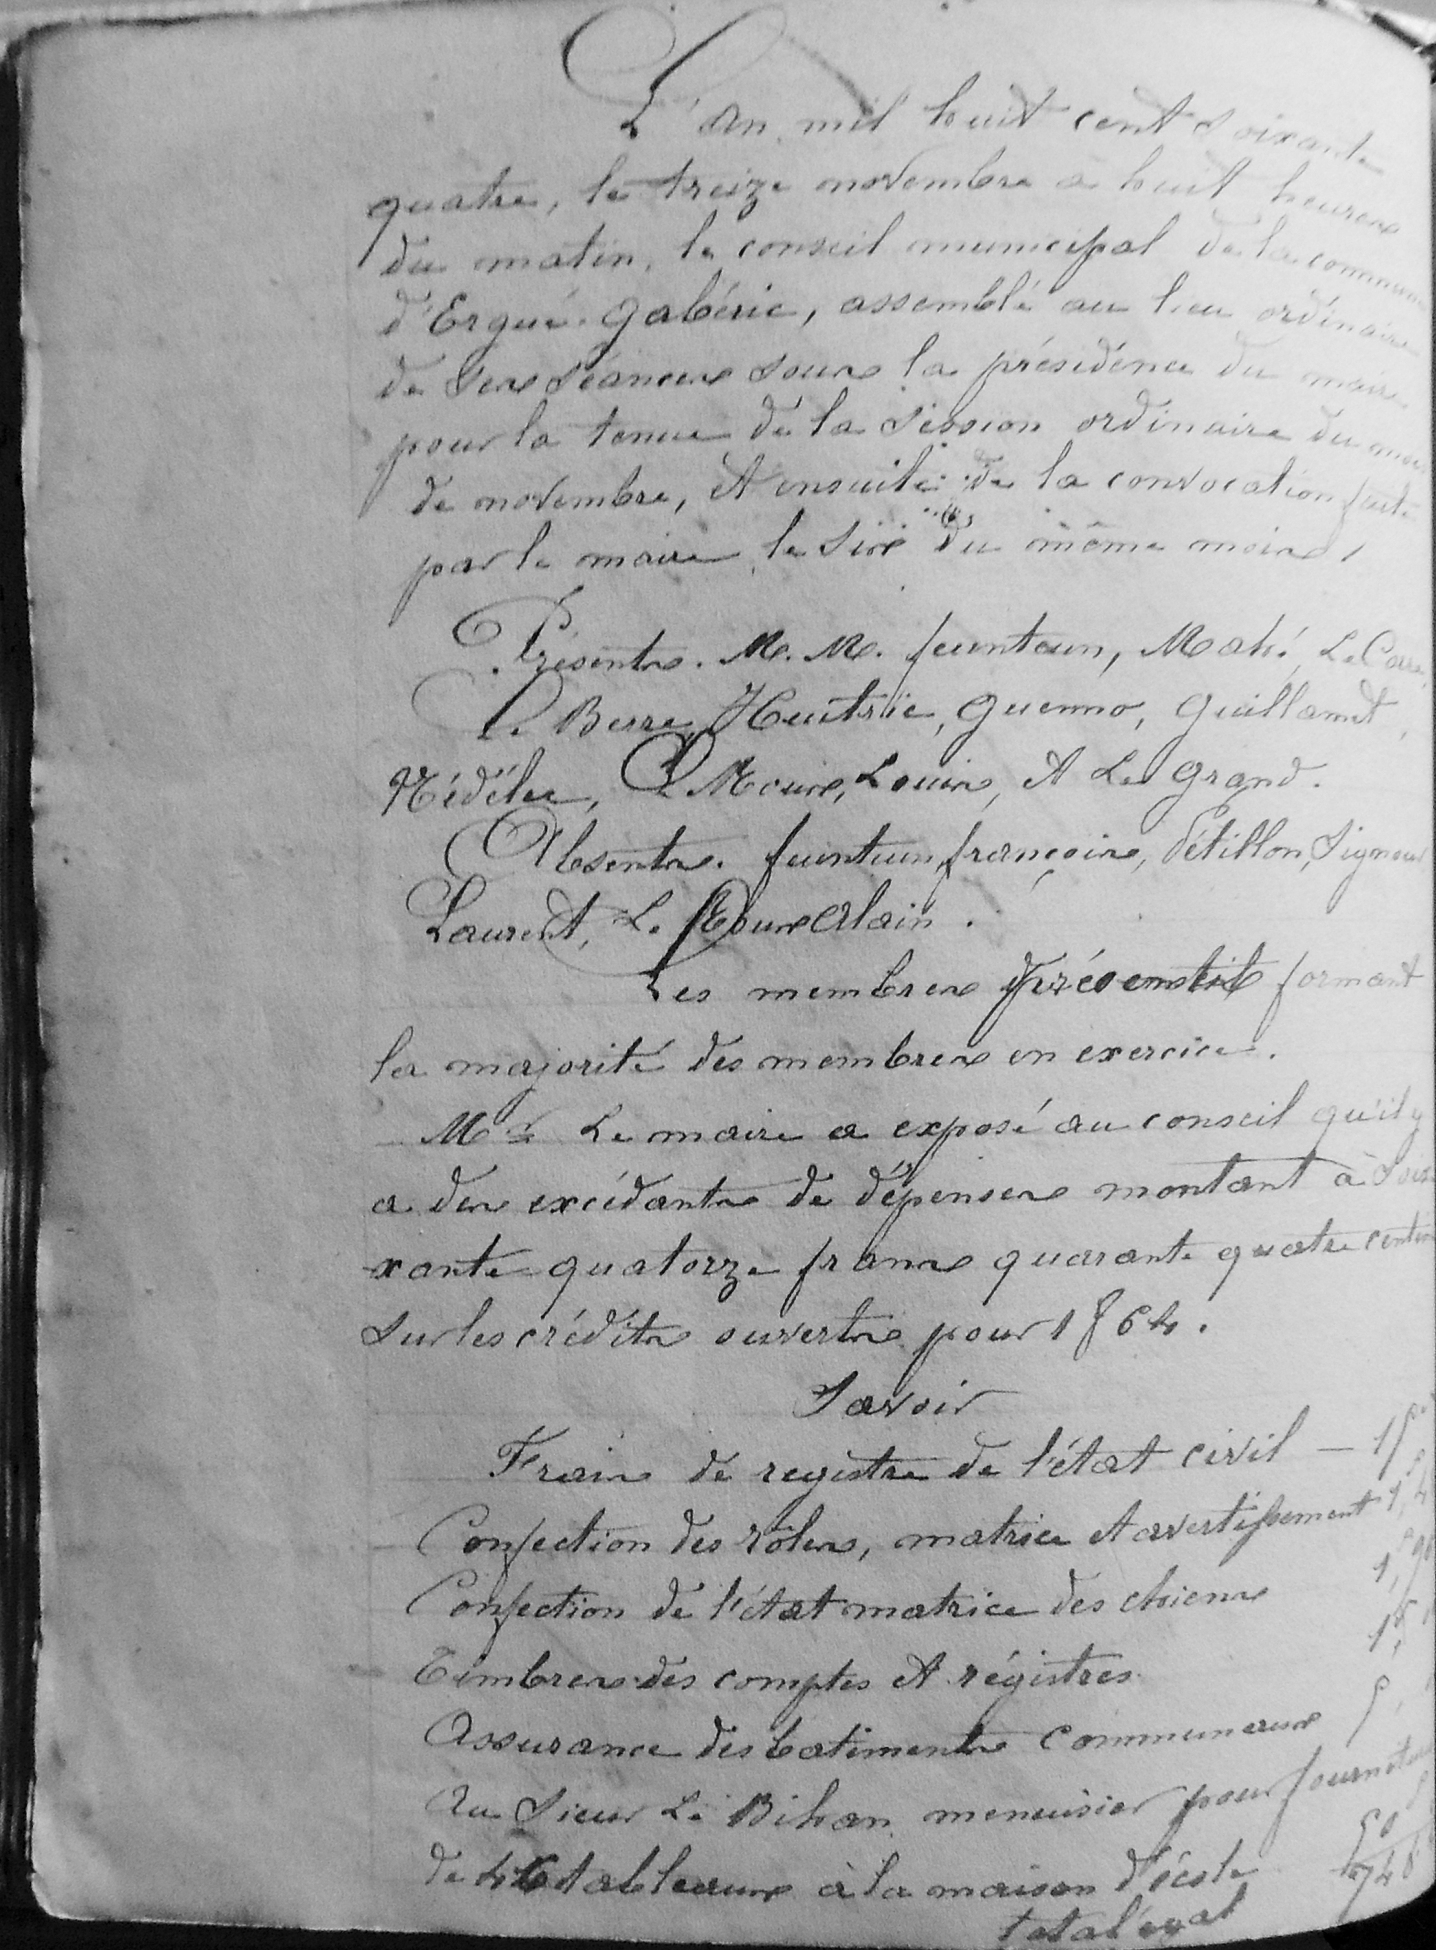 L'an mil huit cent soixante
quatre, le treize novembre a huit heures
du matin, le conseil municipal de la commune
d'Ergué-Gabéric, assemblé au lieu ordinaire
de ses séances sous la présidence du maire
pour la tenue de la session ordinaire du mois
de novembre, et ensuite de la convocation faite
par le maire le six du même mois,
Présents. M.M. feunteun, Mahé, Le Corre,
Le Berre, Huitric, Guenno, Guillamet,
Nédélec, Le Moine, Louis, et Le Grand.
Absents. feunteun françois, Pétillon, Signour
Laurent, Le Roux Alain.
Les membres présents formant
la majorité des membres en exercice.
Mr Le maire a exposé au conseil qu'il y
a des excédants de dépenses montant à soi
xante quatorze francs quarante quatre centim
sur les crédits ouverts pour 1864.
Savoir
Frais de registre de l'état civil —
Confection des rôles, matrice et avertissement
Confection de l'état matrice des chiens
Timbres des comptes et régistres
Assurance des batiments communaux
Au Sieur Le Bihan menuisier pour fourniture
de 46 tableaux à la maison d'école
total égal